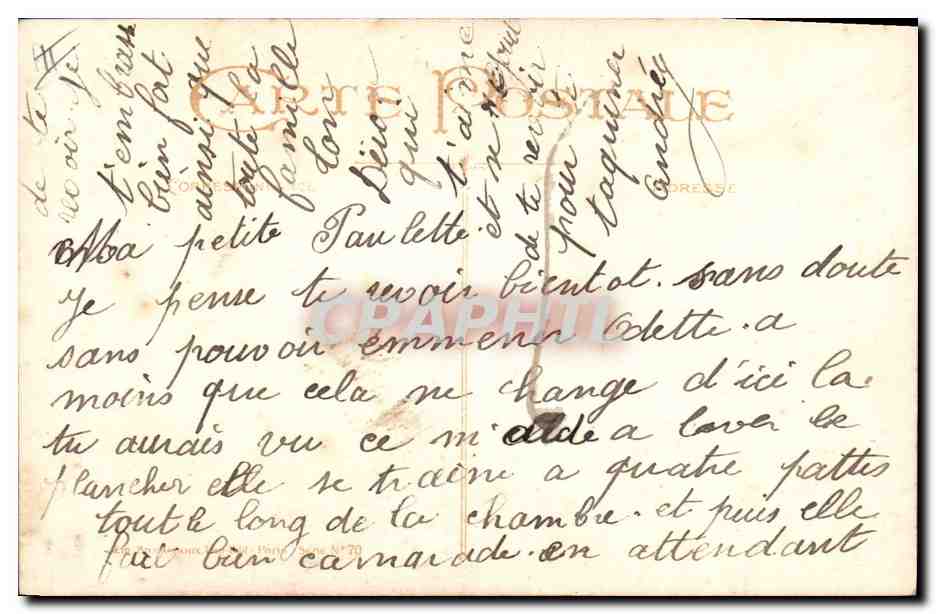 CARTE POSTALE
CORRESPONDANCE
ADRESSE
Ma petite Paulette.
Je pense te revoir bientot. sans doute
sans pouvoir emmener Odette. a
moins que cela ne change d'ici la.
tu aurais vu ce m'aide a laver le
plancher elle se traine a quatre pattes
tout le long de la chambre. et puis elle
fait bien camarade. en attendant
de te
revoir je
t'embrasse
bien fort.
ainsi que
toute la
famille
ton
qui
t'aime
et se
de te revoir
pour te
taquiner
Andrée
Paris - Série N° 70
CPAPHIL